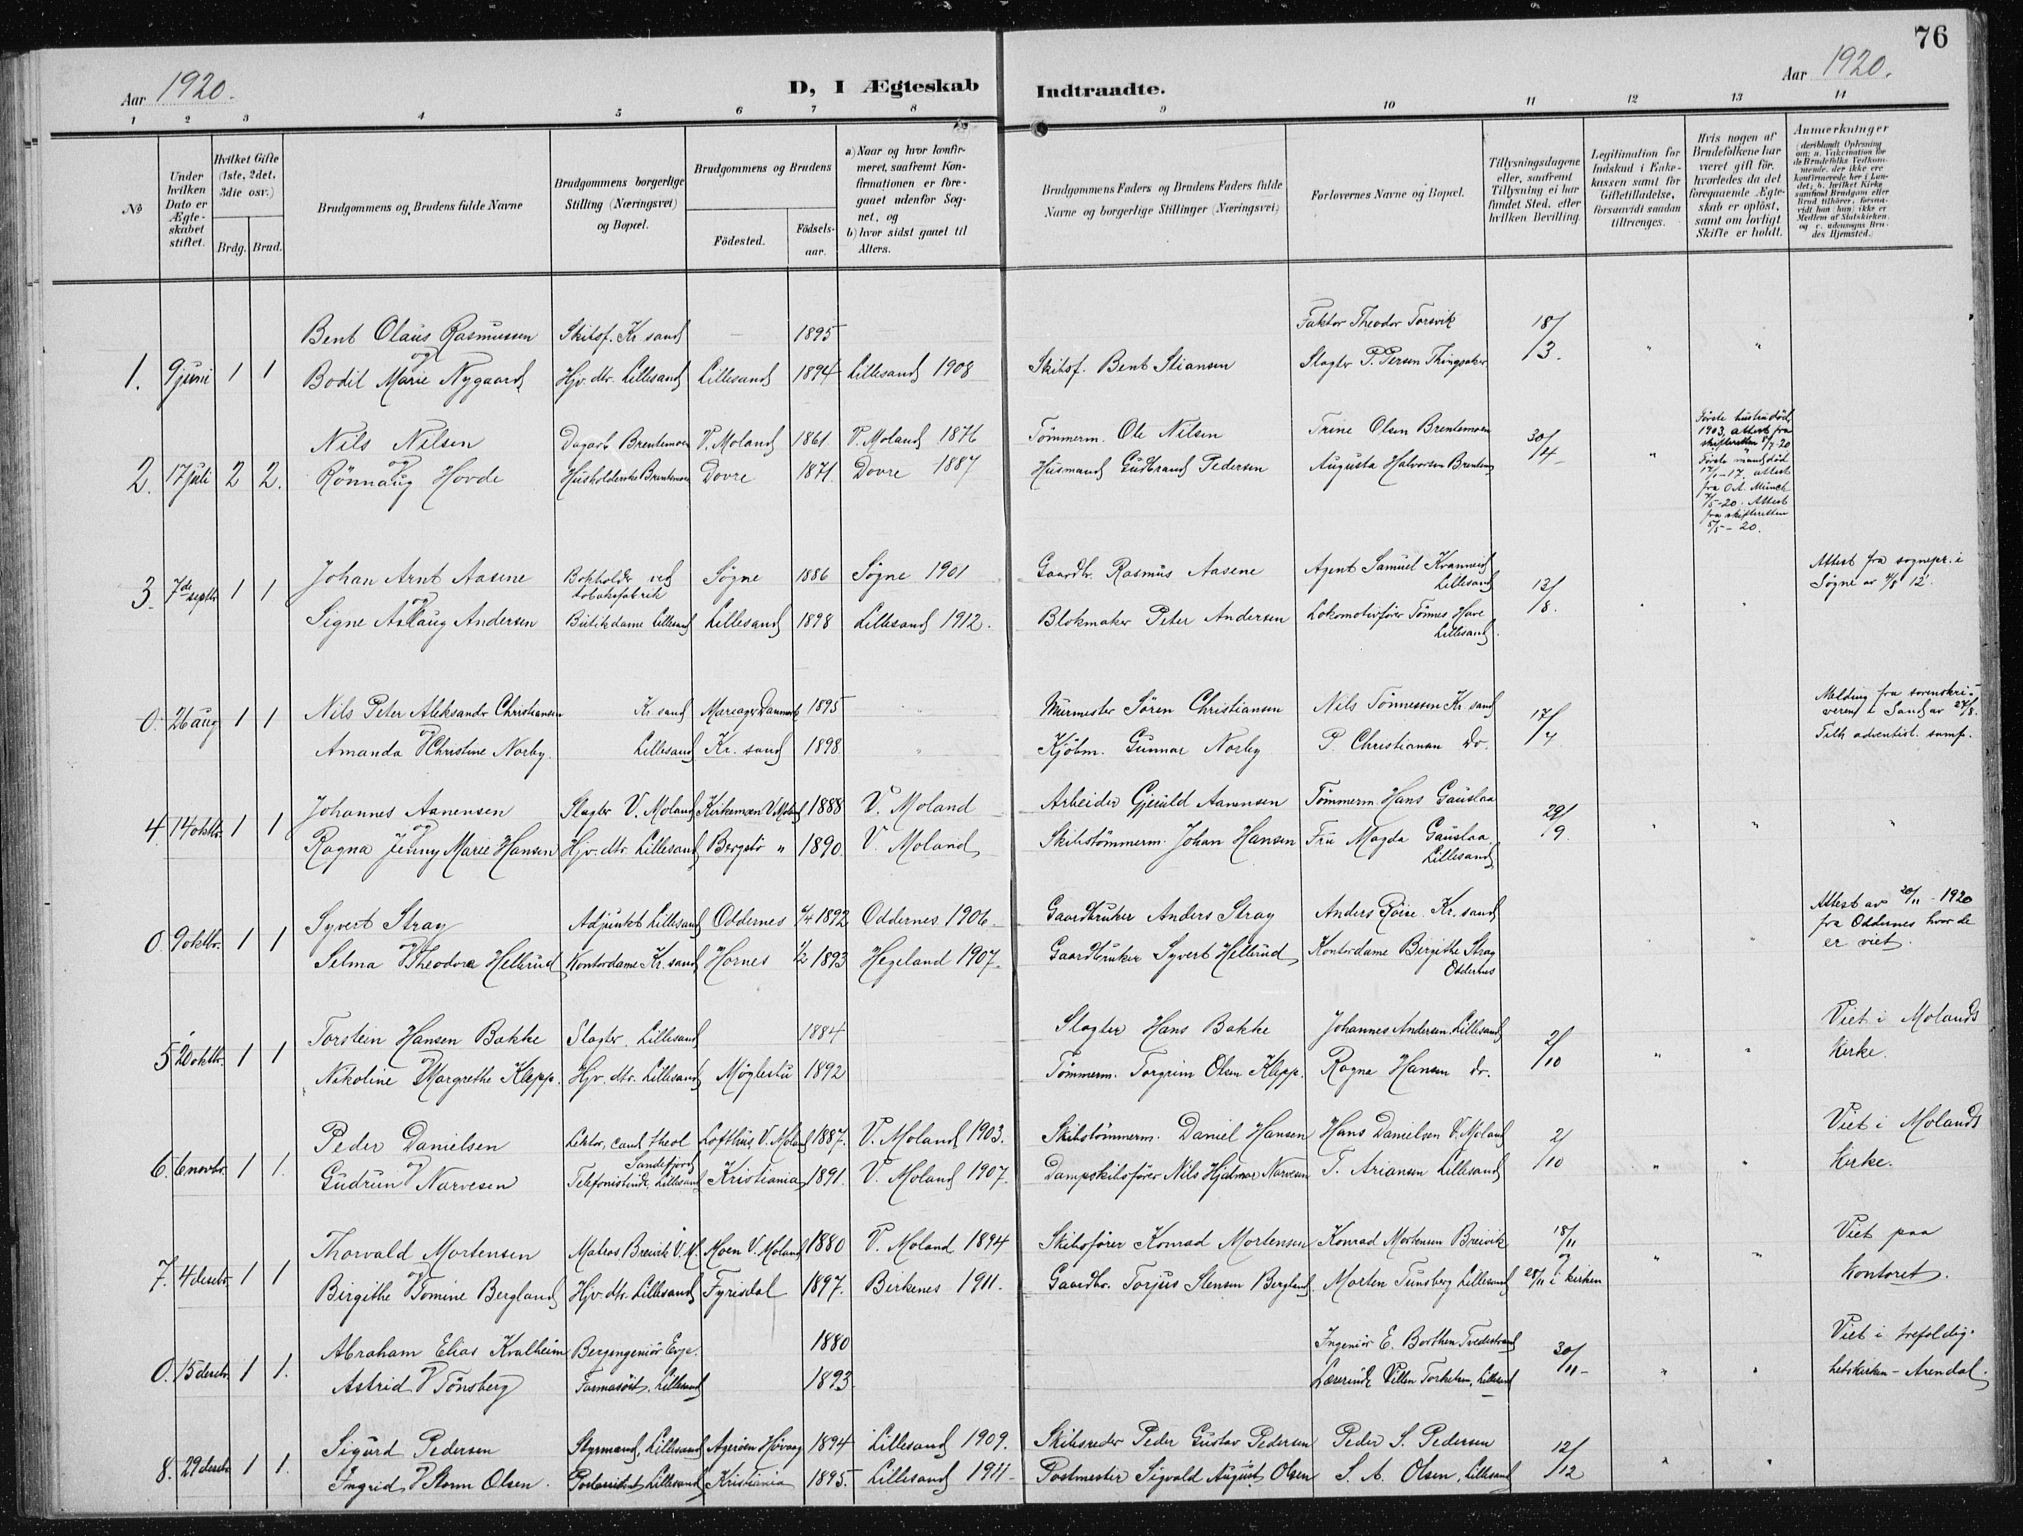 76
Aar 1920.
D, I Ægteskab Indtraadte.
Aar 1920.
1 2 3 4 5 6 7 8 9 10 11 12 13 14
№
Under hvilken Dato er Ægteskabet stiftet.
Hvilket Gifte (1ste, 2det, 3die osv.)
Brdg. Brud.
Brudgommens og Brudens fulde Navne
Brudgommens borgerlige Stilling (Næringsvei) og Bopæl.
Brudgommens og Brudens
Fødested.
Fødselsaar.
a) Naar og hvor konfirmeret, saafremt Konfirmationen er foregaaet udenfor Sognet, og
b) hvor sidst gaaet til Alters.
Brudgommens Faders og Brudens Faders fulde Navne og borgerlige Stillinger (Næringsvei)
Forlovernes Navne og Bopæl.
Tillysningsdagene eller, saafremt Tillysning ei har fundet Sted, efter hvilken Bevilling.
Legitimation for Indskud i Enkekassen samt for Giftetilladelse, forsaavidt saadan tiltrænges.
Hvis nogen af Brudefolkene har været gift før, hvorledes da det foregaaende Ægteskab er opløst, samt om lovligt Skifte er holdt.
Anmerkninger
Bent Olaus Rasmussen Skibsf. Kr.sand 1895 Faktor Theodor Torsvik 18/3.
1. 9 juni 1 1 og
Bodil Marie Nygaard Hjv. dtr. Lillesand Lillesand 1894 Lillesand 1908 Skibsf. Bent Stiansen Slagter P. Persen Thingsaker " "
Nils Nilsen Dagarb. Brentemoen V. Moland 1861 V. Moland 1876 Tømmerm. Ole Nilsen Trine Olsen Brentemoen 30/4 Første hustru død 1903, attest fra skifteretten 5/7 20
2. 17 juli 2 2. og
Rønnaug Hovde Husholderske Brentemoen Dovre 1871. Dovre 1887 Husmand Gudbrand Pedersen Augusta Halvorsen Brentemoen " Første mand død 17/1-17, attest fra O.A. Münch 7/5-20. Attest fra skifteretten 5/5-20.
Johan Arnt Aasene Bokholder ved tobaksfabrik Søgne 1886 Søgne 1901 Gaardbr. Rasmus Aasene Agent Samuel Kvanvig Lillesand 13/8. Attest fra sognepr. i Søgne av 4/8 12.
3. 7de septbr. 1 1 og
Signe Aslaug Andersen Butikdame Lillesand Lillesand 1898 Lillesand 1912. Blokmaker Peter Andersen Lokomotivfører Tønnes Have Lillesand.
Nils Peter Aleksander Christiansen Kr.sand Mariager Danmark 1895 " Murmester Søren Christiansen Nils Tønnessen Kr.sand 17/7 Melding fra sorenskriveren i Sand av 27/8. Tilh. adventist. samf.
0. 26 aug 1 1 og
Amanda Christine Norby. Lillesand Kr.sand 1898 " Kjøbm. Gunnar Norby P. Christiansen do.
Johannes Aanensen Slagter V. Moland Kirkemoen V. Moland 1888 V. Moland Arbeider Gjeruld Aanensen Tømmerm. Hans Gauslaa 29/9.
4. 14 oktbr. 1 1 og
Ragna Jenny Marie Hansen Hjv. dtr. Lillesand Bergstø " 1890. V. Moland Skibstømmerm. Johan Hansen Fru Magda Gauslaa Lillesand " " "
Syvert Stray Adjunkt Lillesand Oddernes 1892 Oddernes 1906. Gaardbruker Anders Stray Anders Røise Kr.sand Attest av 20/11-1920 fra Oddernes hvor de er viet.
0. 9 oktbr. 1 1 og
Selma Theodora Hellerud Kontordame Kr.sand Hornes 1/2 1893 Hegeland 1907. Gaardbruker Syvert Hellerud Kontordame Bergithe Stray Oddernes
Torstein Hansen Bakke Slagter Lillesand 1884 Slagter Hans Bakke Johannes Andersen Lillesand 2/10 Viet i Molands Kirke.
5 20 oktbr. 1 1 og
Nikoline Margrethe Klepp. Hjv. dtr. Lillesand Møglestu 1892 Tømmerm. Torgrim Olsen Klepp. Ragna Hansen do. " "
Peder Danielsen Lektor, cand. theol Sandefjord Lofthus, V. Moland 1887. V. Moland 1903. Skibstømmerm. Daniel Hansen Hans Danielsen V. Moland 2/10 Viet i Molands Kirke.
6. 6 novbr. 1 1. og
Gudrun Narvesen Telefonistinde, Lillesand Kristiania 1891. V. Moland 1907. Dampskibsfører Nils Hjalmar Narvesen T. Ariansen Lillesand " "
Thorvald Mortensen Matros Breivik V.M. Moen V. Moland 1880 V. Moland 1894 Skibsfører Konrad Mortensen Konrad Mortensen Breivik 18/11 Viet paa Kontoret.
7. 4 decbr. 1 1 og
Birgithe Tomine Bergland Hjv. dtr. Lillesand Fyrisdal 1897. Birkenes 1911. Gaardbr. Torjus Stensen Bergland. Morten Tunsberg Lillesand 28/11 i kirken " "
Abraham Elias Kvalheim Bergingeniør Evje. 1880 Ingeniør E. Borthen Tvedestrand 30/11 Viet i trefoldighetskirken - Arendal.
0. 15 decbr. 1 1. og
Astrid Tønsberg Farmaceut, Lillesand 1893. Lærerinde Villen Torkelsen, Lillesand " "
Sigurd Pedersen Styrmand, Lillesand Agerøen Høvaag 1894 Lillesand 1909. Skibsreder Peder Gustav Pedersen Peder S. Pedersen 12/12
8. 29 decbr. 1 1. og
Ingrid Storm Olsen. Postassistent Lillesand Kristiania 1895. Lillesand 1911 Postmester Sigvald August Olsen S. A. Olsen, Lillesand " "